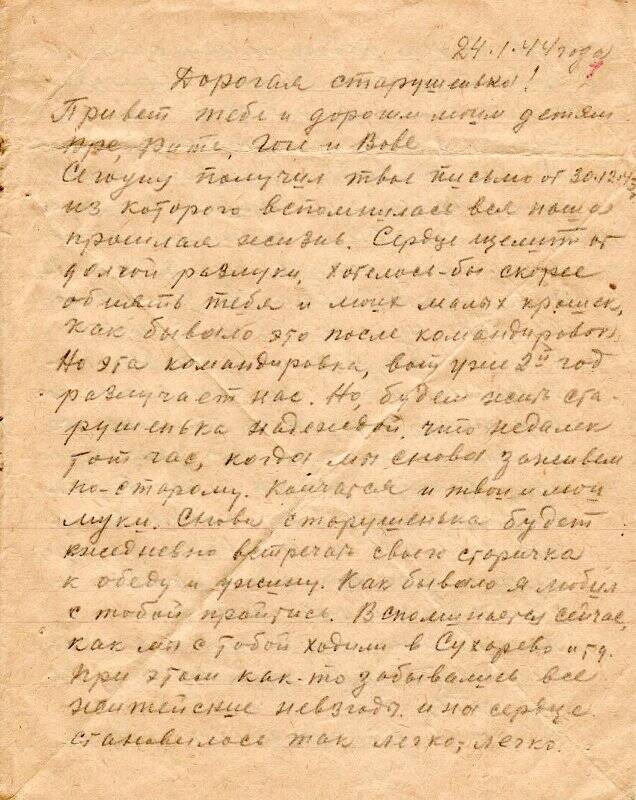 24.1.44 года
Дорогая старушенька!
Привет тебе и дорогим моим детям
Рите, Гоге и Вове.
Сегодня получил твое письмо от 30.12.43
из которого вспомнилась вся наша
прошлая жизнь. Сердце щемит от
долгой разлуки, хотелось-бы скорее
обнять тебя и моих малых крошек,
как бывало это после командировок.
Но эта командировка, вот уже 2й год
разлучает нас. Но, будем жить ста-
рушенька надеждой, что недалек
тот час, когда мы снова заживем
по-старому. Кончатся и твои и мои
муки. Снова старушенька будет
ежедневно встречать своего старичка
к обеду и ужину. Как бывало я любил
с тобой пройтись. Вспоминается сейчас,
как мы с тобой ходили в Сухарево и тд.
При этом как-то забывались все
житейские невзгоды и на сердце
становилось так легко, легко.